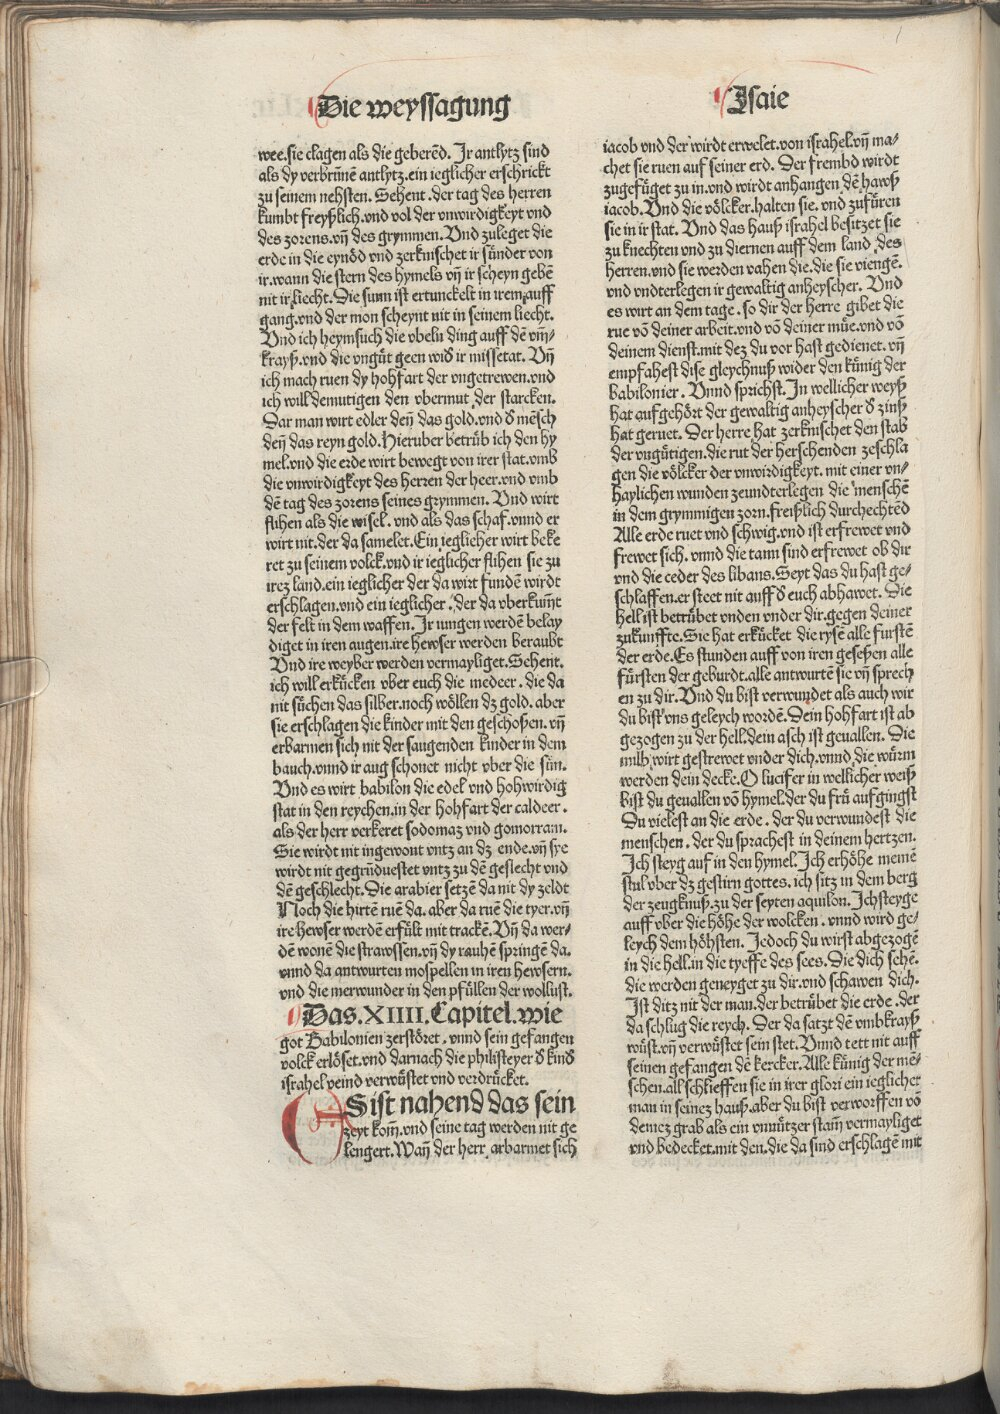 Die weyssagung
Jsaie
wee.sie clagen als die geberēd. Jr antlytz sind
als dy verbrinnē antlytz.ein ieglicher erschrickt
zu seinem nehsten. Sehent.der tag des herren
kumbt freyßlich.vnd vol der vnwirdigkeyt vnd
des zorens.vn̄ des grymmen. Vnd zuleget die
erde in die eynöd vnd zerknischet ir sünder von
ir.wann die stern des hymels vn̄ ir scheyn gebē
nit ir liecht. Die sunn ist ertunckelt in irem auff
gang.vnd der mon scheynt nit in seinem liecht.
Vnd ich heymsuch die vbeln ding auff dē vm̄-
krayß.vnd die vngüt geen wid ir missetat. Vn̄
ich mach ruen dy hohfart der vngetrewen.vnd
ich will demutigen den vbermut der starcken.
Dar man wirt edler den̄ das gold.vnd d mēsch
den̄ das reyn gold. Hieruber betrüb ich den hy
mel.vnd die erde wirt bewegt von irer stat.vmb
die vnwirdigkeyt des herren der heer.vnd vmb
dē tag des zorens seines grymmen. Vnd wirt
flihen als die wisel.vnd als das schaf.vnnd er
wirt nit.der da samelet. Ein ieglicher wirt beke
ret zu seinem volck.vnd ir ieglicher flihen sie zu
irez land.ein ieglicher der da wirt fundē wirdt
erschlagen.vnd ein ieglicher.der da vberkum̄t
der felt in dem waffen. Jr iungen werdē belay
diget in iren augen.ire hewser werden beraubt
Vnd ire weyber werden vermayliget. Sehent.
ich will erkücken vber euch die medeer.die da
nit süchen das silber.noch wöllen dz gold. aber
sie erschlagen die kinder mit den geschoßen.vn̄
erbarmen sich nit der saugenden kinder in dem
bauch.vnnd ir aug schonet nicht vber die sün.
Vnd es wirt babilon die edel vnd hohwirdig
stat in den reychen.in der hohfart der caldeer.
als der herr verkeret sodomaz vnd gomorram.
Sie wirdt nit ingewont vntz an dz ende.vn̄ sye
wirdt nit gegründuestet vntz zu dē geslecht vnd
dē geschlecht. Die arabier setzē da nit dy zeldt
Noch die hirtē ruē da. aber da ruē die tyer.vn̄
ire hewser werdē erfült mit trackē. Vn̄ da wer-
dē wonē die strawssen.vn̄ dy rauhē springē da.
vnnd da antwurten mospellen in iren hewsern.
vnd die merwunder in den pfüllen der wollust.
Das.XIIII.Capitel.wie
got Babilonien zerstöret.vnnd sein gefangen
volck erlöset.vnd darnach die philisteyer d kind
israhel veind verwüstet vnd verdrücket.
ES ist nahend das sein
zeyt kom̄.vnd seine tag werden nit ge
lengert. Wan̄ der herr arbarmet sich
iacob vnd der wirdt erwelet.von israhel.vn̄ ma-
chet sie ruen auf seiner erd. Der frembd wirdt
zugefüget zu in.vnd wirdt anhangen dē hawß
iacob. Vnd die völcker.halten sie.vnd zufüren
sie in ir stat. Vnd das hauß israhel besitzet sie
zu knechten vnd zu diernen auff dem land des
herren.vnd sie werden vahen die.die sie viengē.
vnd vndterlegen ir gewaltig anheyscher. Vnd
es wirt an dem tage.so dir der herre gibet die
rue vō deiner arbeit.vnd vō deiner müe.vnd vō
deinem dienst.mit dez du vor hast gedienet.vn̄
empfahest dise gleychnuß wider den künig der
babilonier. Vnnd sprichst. Jn wellicher weyß
hat aufgehört der gewaltig anheyscher d zinß
hat geruet. Der herre hat zerknischet den stab
der vngütigen.die rut der herschenden zeschla
gen die völcker der vnwirdigkeyt. mit einer vn-
haylichen wunden zeundterlegen die menschē
in dem grymmigen zorn.freißlich durchechtēd
Alle erde ruet vnd schwig.vnd ist erfrewet vnd
frewet sich. vnnd die tann sind erfrewet ob dir
vnd die ceder des libans. Seyt das du hast ge-
schlaffen.er steet nit auff d euch abhawet. Die
hell ist betrübet vnden vnder dir.gegen deiner
zukunffte. Sie hat erkücket die rysē alle furstē
der erde. Es stunden auff von iren geseßen alle
fürsten der geburdt.alle antwurtē sie vn̄ sprech
en zu dir. Vnd du bist verwundet als auch wir
du bist vns geleych wordē. Dein hohfart ist ab
gezogen zu der hell.dein asch ist geuallen. Die
milb wirt gestrewet vnder dich.vnnd die würm
werden dein decke. O lucifer in welkicher weiß
bist du geuallen vō hymel.der du frü aufgingst
Du vielest an die erde.der du verwundest die
menschen.der du sprachest in deinem hertzen.
Jch steyg auf in den hymel. Jch erhöhe meinē
stul vber dz gestirn gottes.ich sitz in dem berg
der zeugknuß.zu der seyten aquilon. Jch steyge
auff vber die höhe der wolcken.vnnd wird ge-
leych dem höhsten. Jedoch du wirst abgezogē
in die hell.in die tyeffe des sees. Die dich sehē.
die werden geneyget zu dir.vnd schawen dich.
Jst ditz nit der man.der betrübet die erde.der
da schlug die reych. Der da satzt dē vmbkrayß
wüst.vn̄ verwüstet sein stet. Vnnd tett nit auff
seinen gefangen dē kercker. Alle künig der mē-
schen.all schlieffen sie in irer glori ein ieglicher
man in seinez hauß.aber du bist verworffen vō
deinez grab als ein vnnützer stam̄ vermayliget
vnd bedecket.mit den.die da sind erschlagē mit